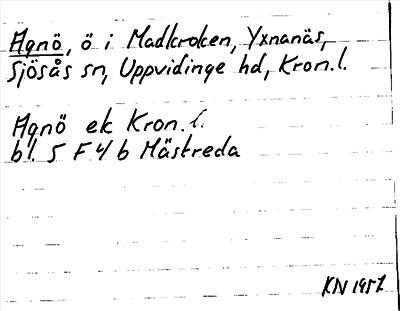 Agnö, ö i Madkroken, Yxnanäs,
Sjösås sn, Uppvidinge hd, Kron.l.
Agnö ek Kron.l.
bl. 5 F 4 b Hästreda
KN 1957